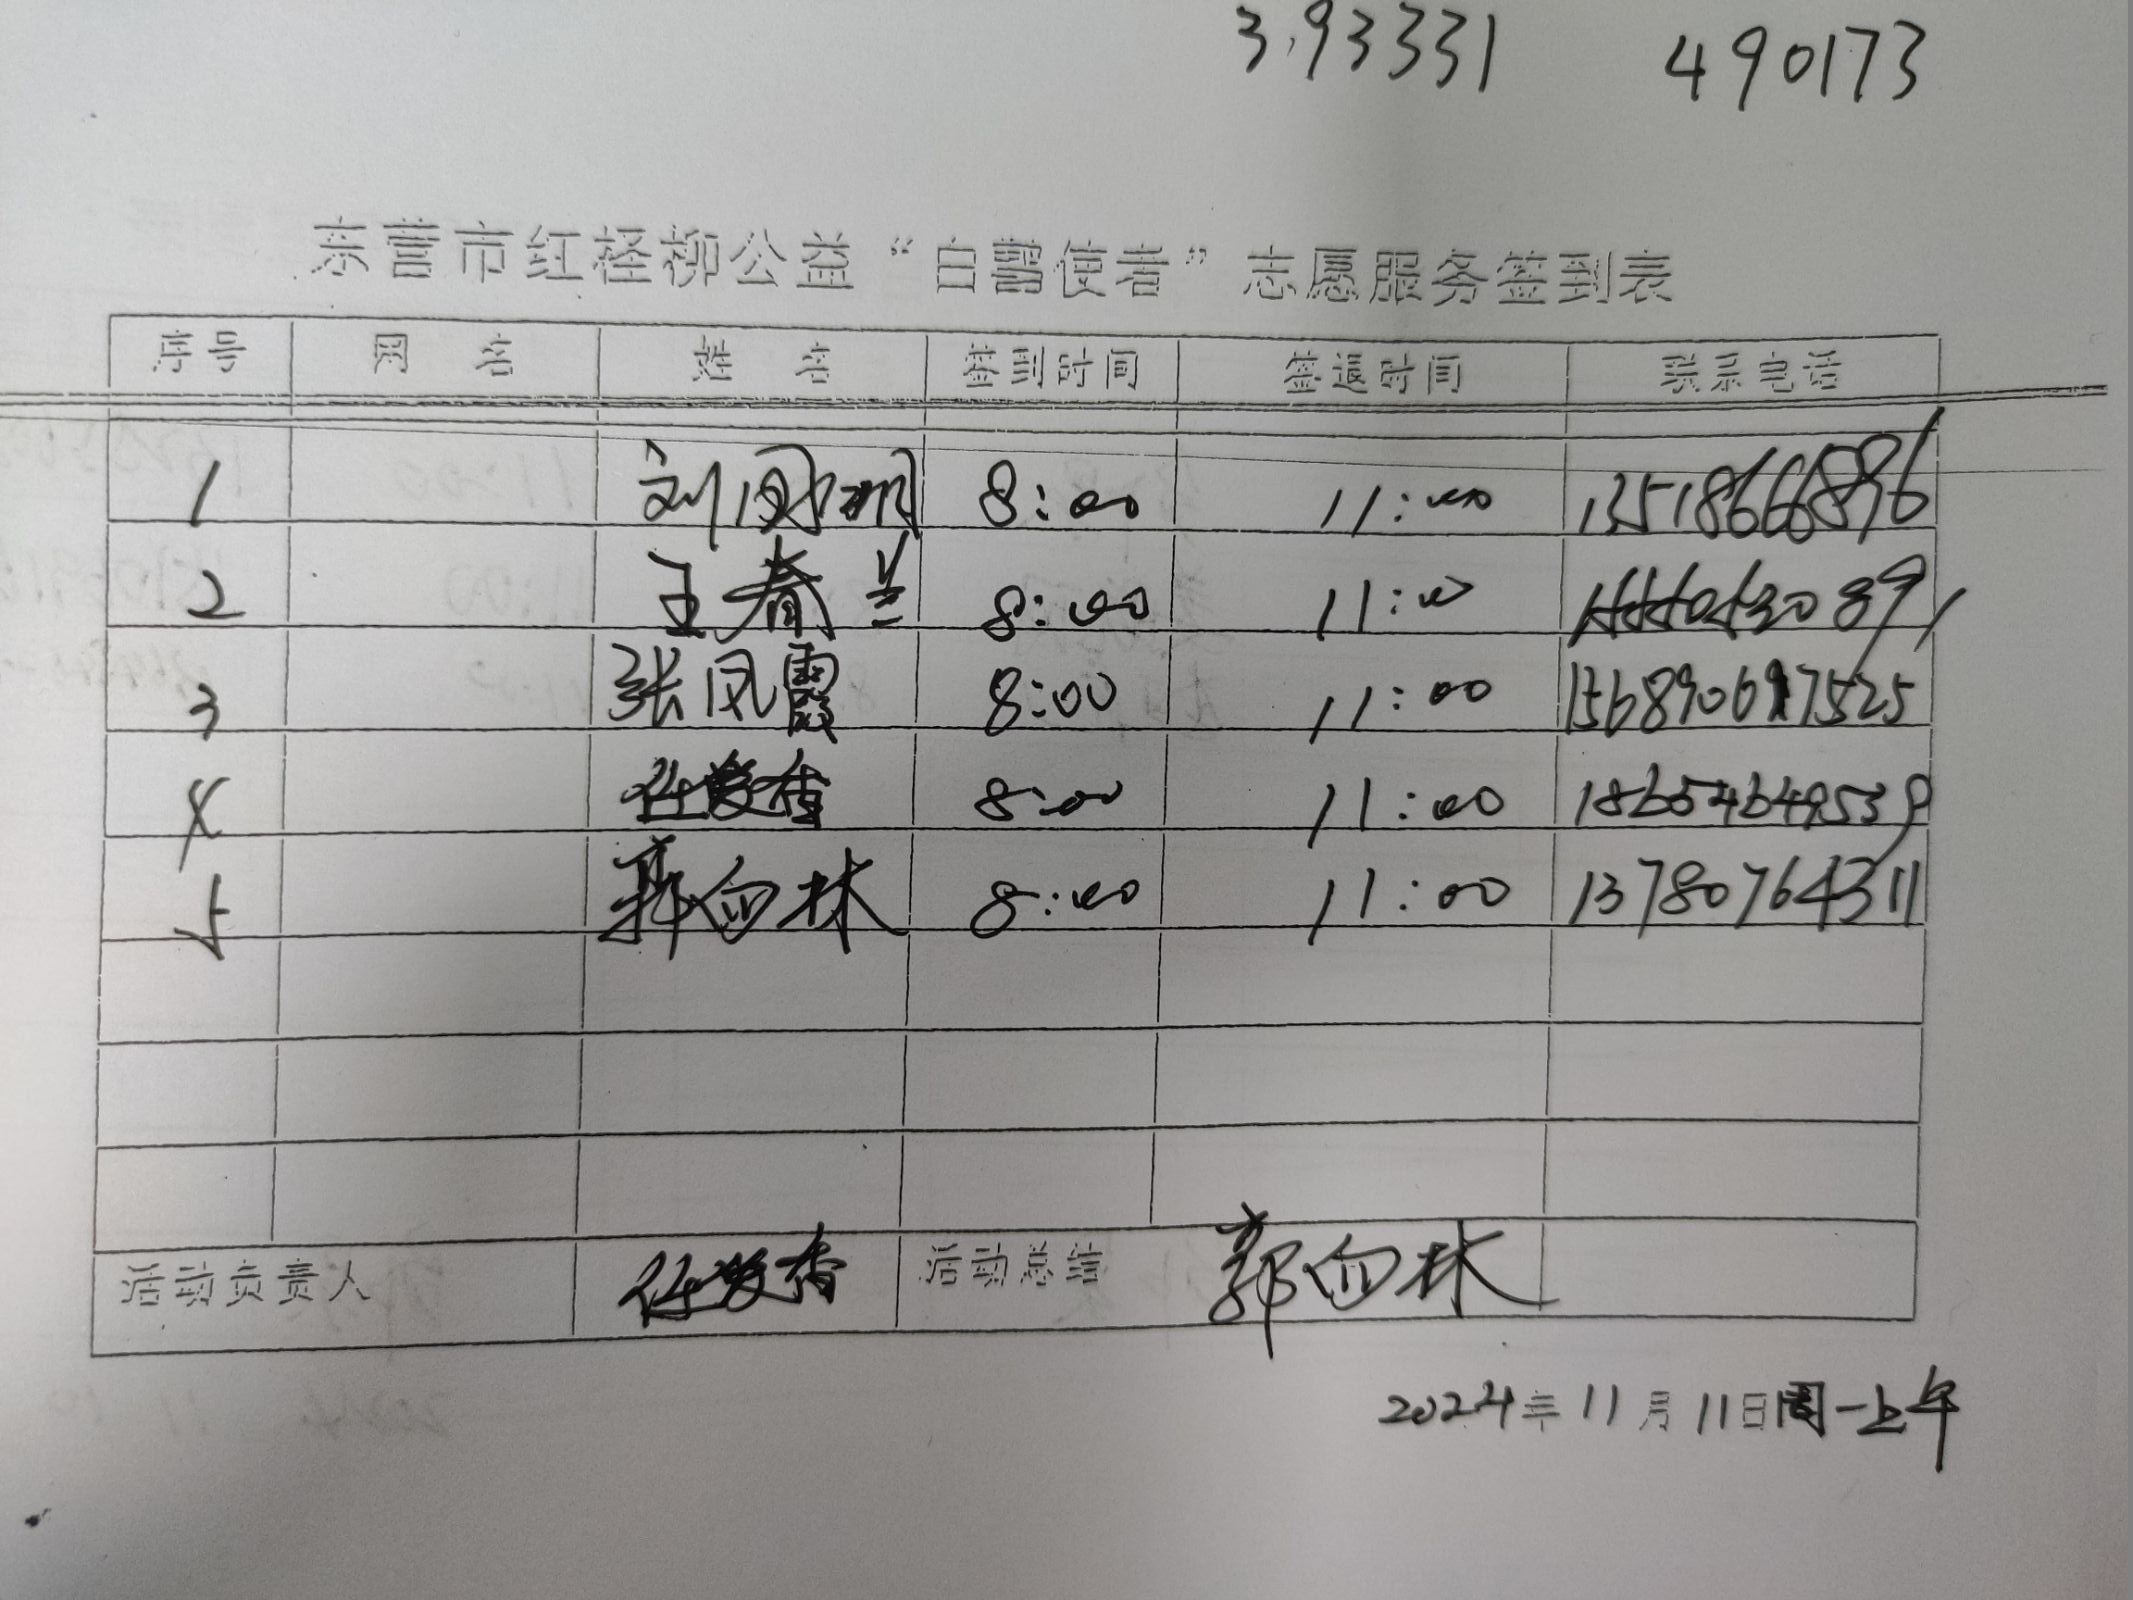 3.93331 490173
东营市红柽柳公益“白鹭使者”志愿服务签到表
序号 网 名 姓 名 签到时间 签退时间 联系电话
1 8:00 11:00 13518666896
2 王春兰 8:00 11:00
3 张凤霞 8:00 11:00
4 8:00 11:00 18654649539
5 郭向林 8:00 11:00 13780764311
活动负责人 活动总结 郭向林
2024年11月11日周一上午